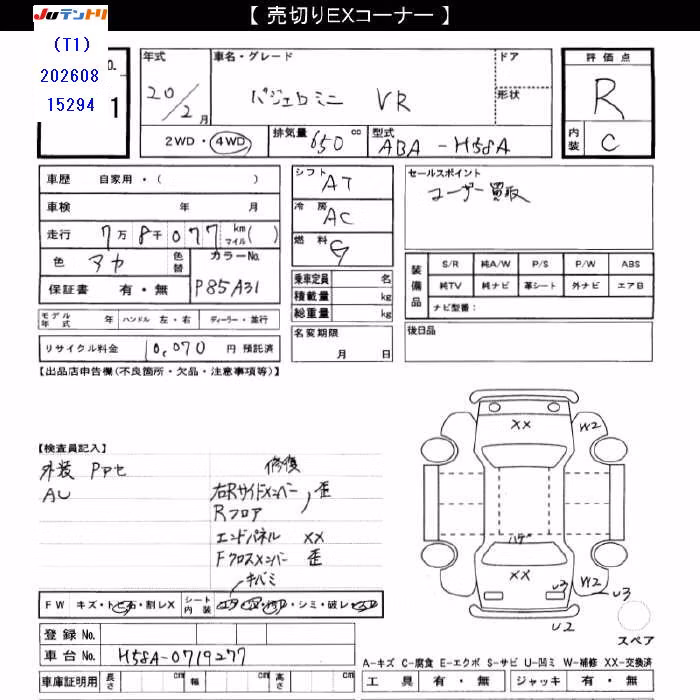 【 売切りEXコーナー 】
JUテントリ
(T1)
202608
15294
o.
1
年式
20/2月
車名・グレード
パジェロミニ VR
ドア
形状
評価点
R
内装
C
2WD・4WD
排気量 650 cc
型式 ABA-H58A
車歴 自家用・( )
車検 年 月
走行 7万8千077 km マイル( )
色 アカ
色替
カラーNo.
P85A31
保証書 有・無
シフト AT
冷房 AC
燃料 G
乗車定員 名
積載量 kg
総重量 kg
セールスポイント
ユーザー買取
装備品
S/R 純A/W P/S P/W ABS
純TV 純ナビ 革シート 外ナビ エアB
ナビ型番：
モデル年式 年 ハンドル 左・右 ディーラー・並行
名変期限
月 日
後日品
リサイクル料金 10,070 円 預託済
【出品店申告欄(不良箇所・欠品・注意事項等)】
【検査員記入】
外装 PPセ
AU
修復
右Rサイドメンバー, 歪
Rフロア
エンドパネル XX
Fクロスメンバー 歪
キバミ
XX
W2
W2
ハゲ
XX
U3
W2
U3
U2
スペア
FW キズ・トビ石・割レX
シート内装
・シミ・破レ・
登録 No.
車台 No. H58A-0719277
車庫証明用 長さ cm 幅 cm 高さ cm
A-キズ C-腐食 E-エクボ S-サビ U-凹ミ W-補修 XX-交換済
工具 有・無 ジャッキ 有・無